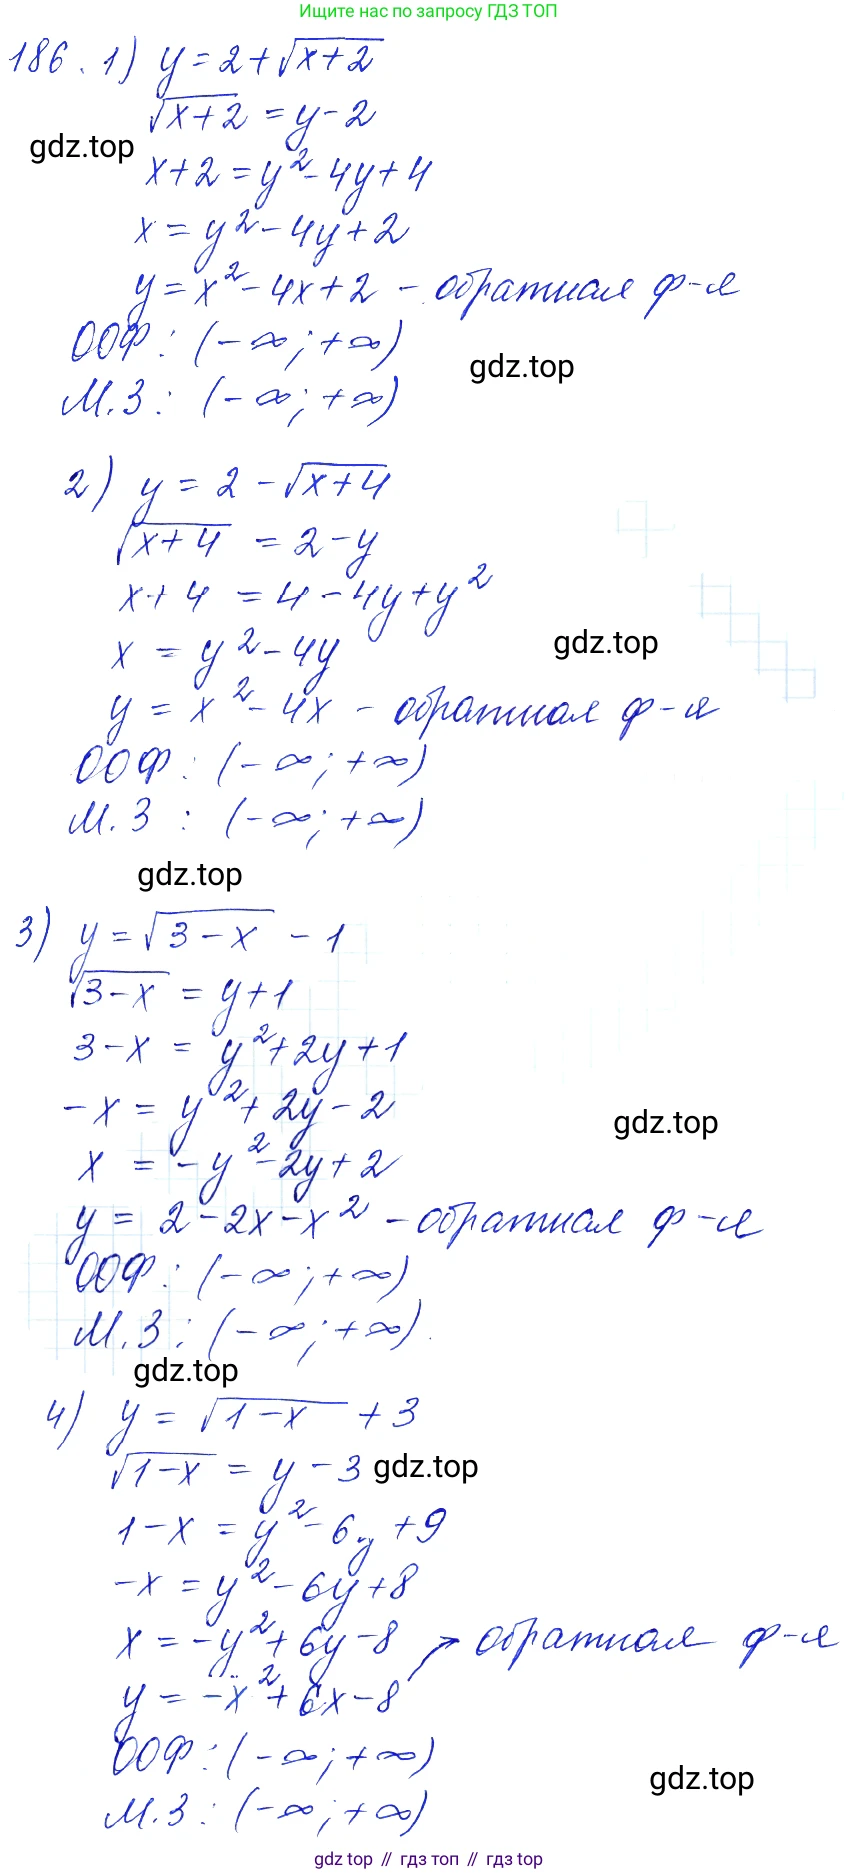 Ищите нас по запросу ГДЗ ТОП
186. 1) y = 2 + √(x+2)
√(x+2) = y - 2
gdz.top
x + 2 = y² - 4y + 4
x = y² - 4y + 2
y = x² - 4x + 2 - обратная ф-я
ООФ: (-∞; +∞)
gdz.top
М.З: (-∞; +∞)
2) y = 2 - √(x+4)
√(x+4) = 2 - y
x + 4 = 4 - 4y + y²
x = y² - 4y
gdz.top
y = x² - 4x - обратная ф-я
ООФ: (-∞; +∞)
М.З : (-∞; +∞)
gdz.top
3) y = √(3-x) - 1
√(3-x) = y + 1
3 - x = y² + 2y + 1
-x = y² + 2y - 2
gdz.top
x = -y² - 2y + 2
y = 2 - 2x - x² - обратная ф-я
ООФ: (-∞; +∞)
М.З: (-∞; +∞).
gdz.top
4) y = √(1-x) + 3
√(1-x) = y - 3
gdz.top
1 - x = y² - 6y + 9
-x = y² - 6y + 8
x = -y² + 6y - 8 → обратная ф-я
y = -x² + 6x - 8
ООФ: (-∞; +∞)
gdz.top
М.З: (-∞; +∞)
gdz.top // гдз топ // гдз top